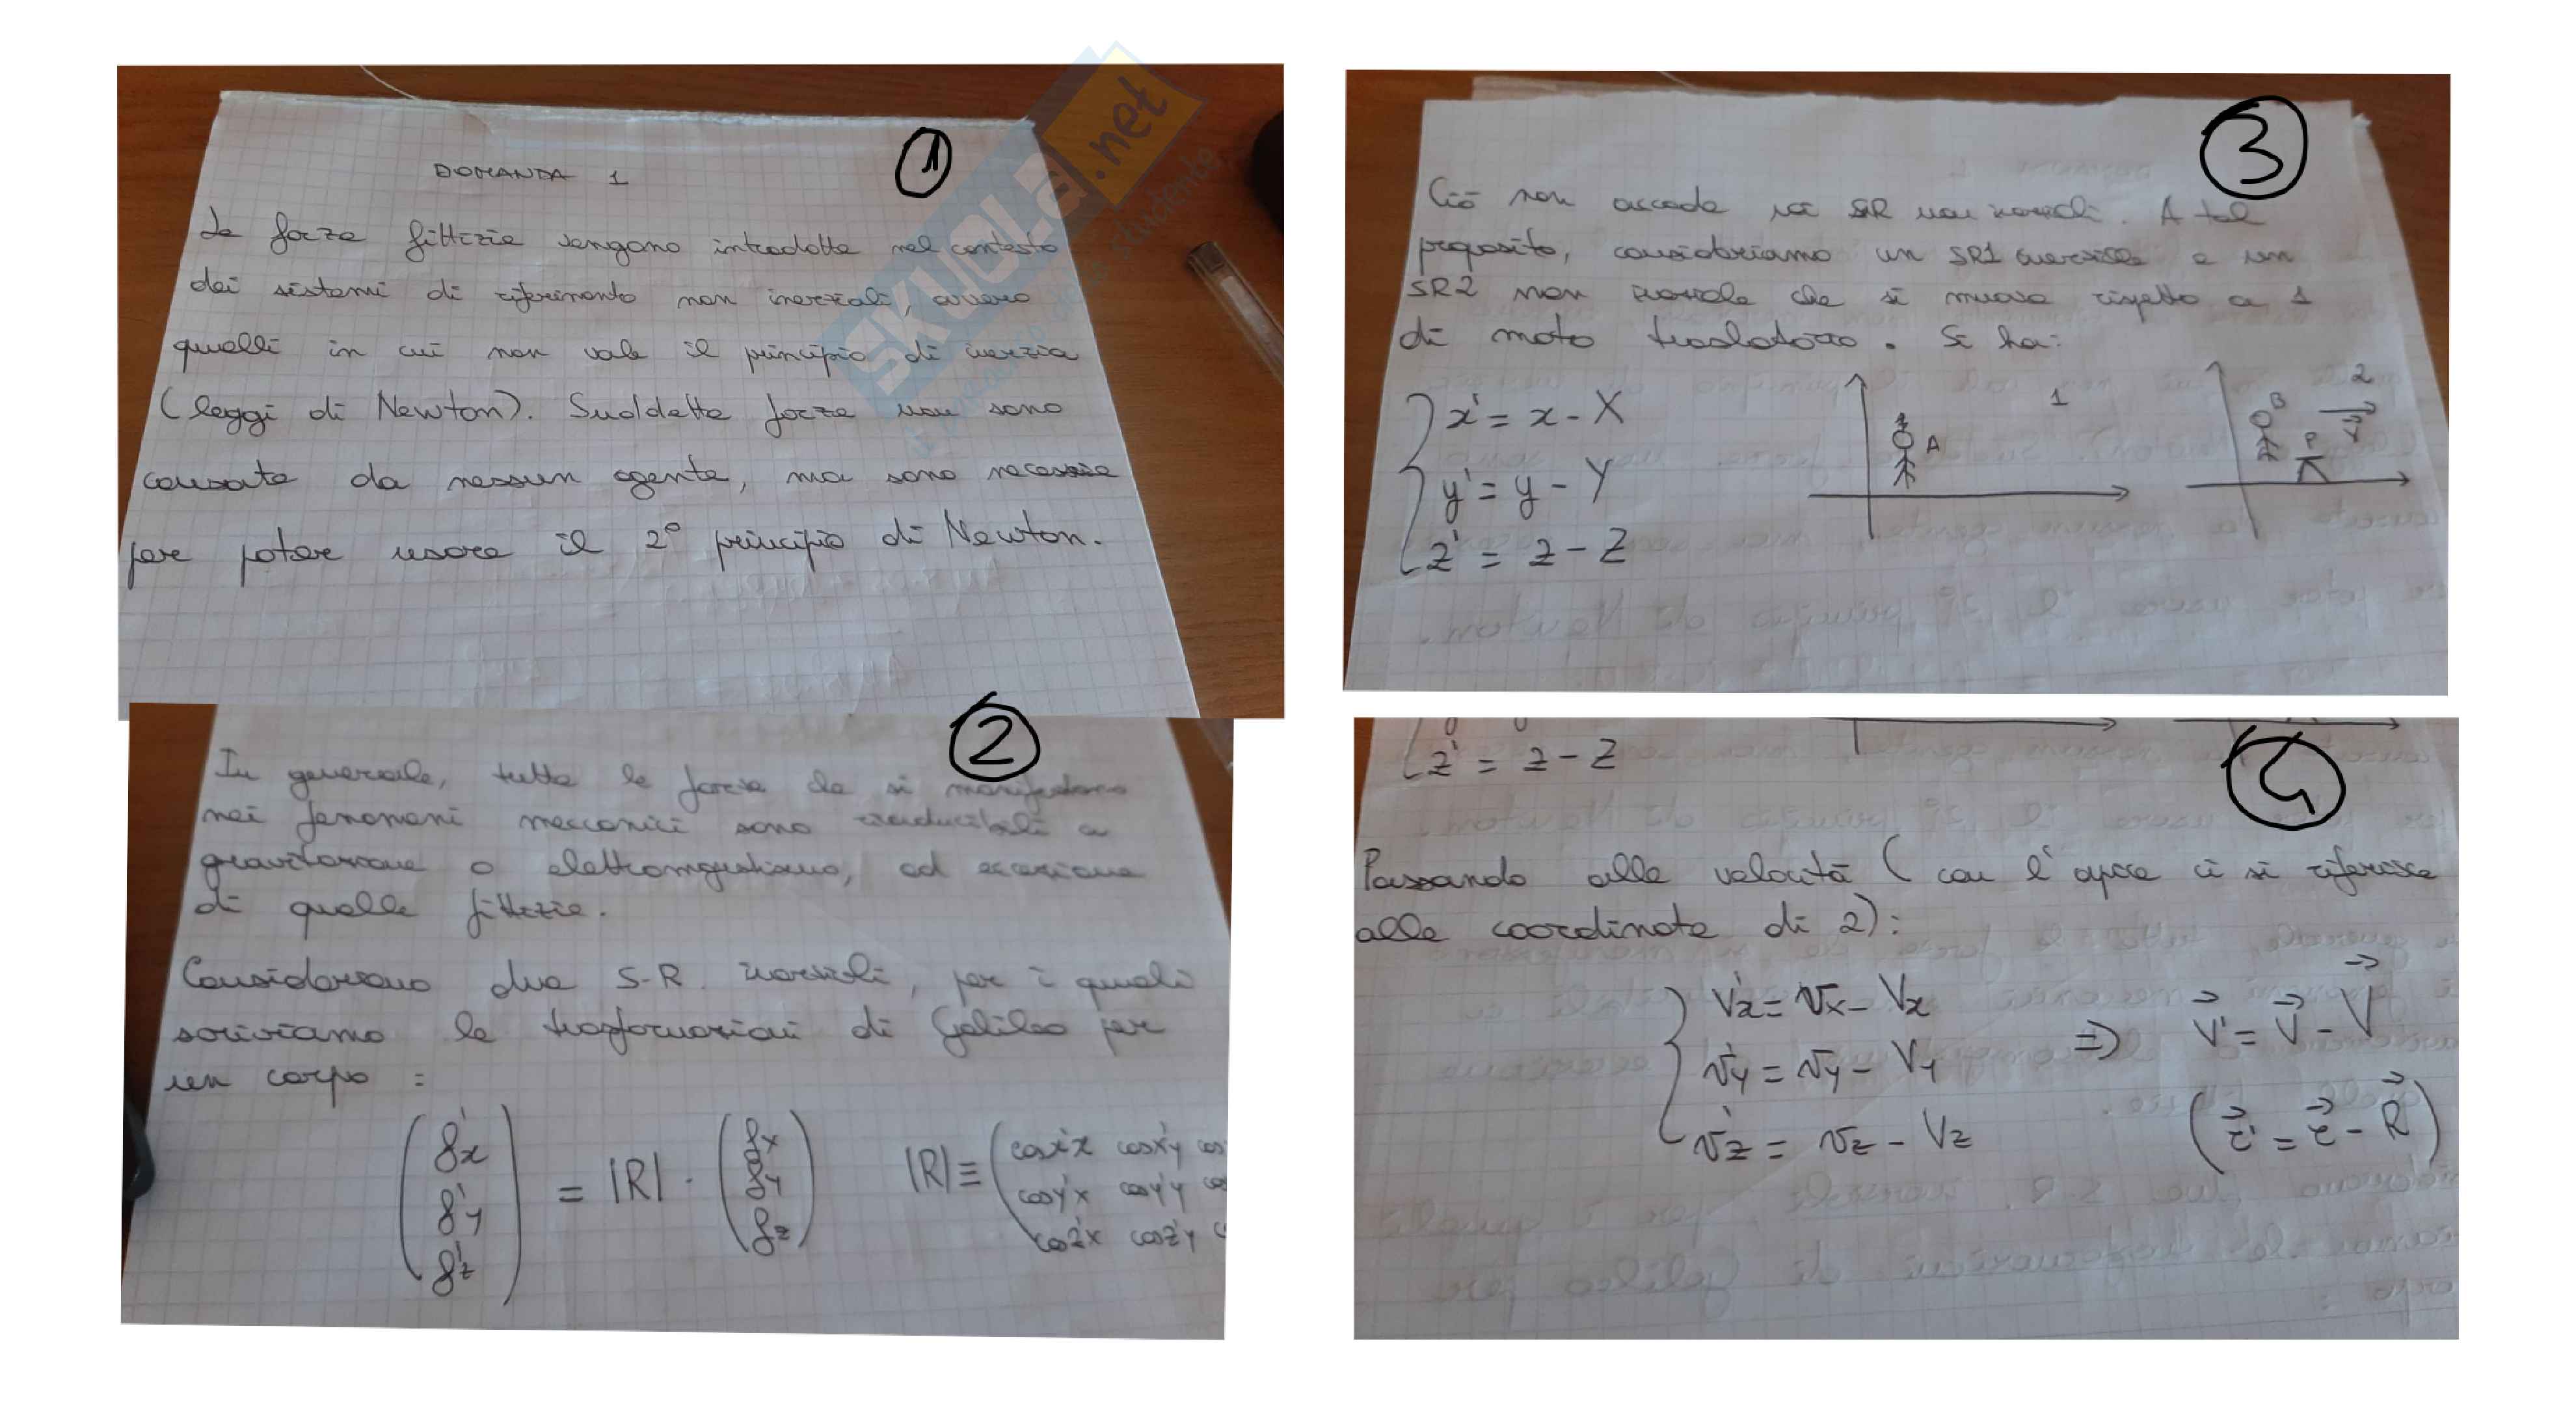 DOMANDA 1
1
Le forze fittizie vengono introdotte nel contesto
dei sistemi di riferimento non inerziali, ovvero
quelli in cui non vale il principio di inerzia
(leggi di Newton). Suddette forze non sono
causate da nessun agente, ma sono necessarie
per poter usare il 2° principio di Newton.
SKUOLA.net
2
In generale, tutte le forze che si manifestano
nei fenomeni meccanici sono riconducibili a
gravitazione o elettromagnetismo, ad eccezione
di quelle fittizie.
Consideriamo due S-R. inerziali, per i quali
scriviamo le trasformazioni di Galileo per
un corpo :
(f'x f'y f'z) = |R| · (fx fy fz) |R| ≡ (cosx'x cosx'y cos
cosy'x cosy'y cos
cosz'x cosz'y c
3
Ciò non accade SR non inerziali. A tal
proposito, consideriamo un SR1 inerziale e un
SR2 non inerziale che si muove rispetto a 1
di moto traslatorio. Si ha:
x' = x - X
y' = y - Y
z' = z - Z
A 1
B P 2
z' = z - Z
4
Passando alle velocità (con l'apice ci si riferisce
alle coordinate di 2):
v'x = vx - Vx
v'y = vy - Vy ⇒ v⃗' = v⃗ - V⃗
v'z = vz - Vz (r⃗' = r⃗ - R⃗)